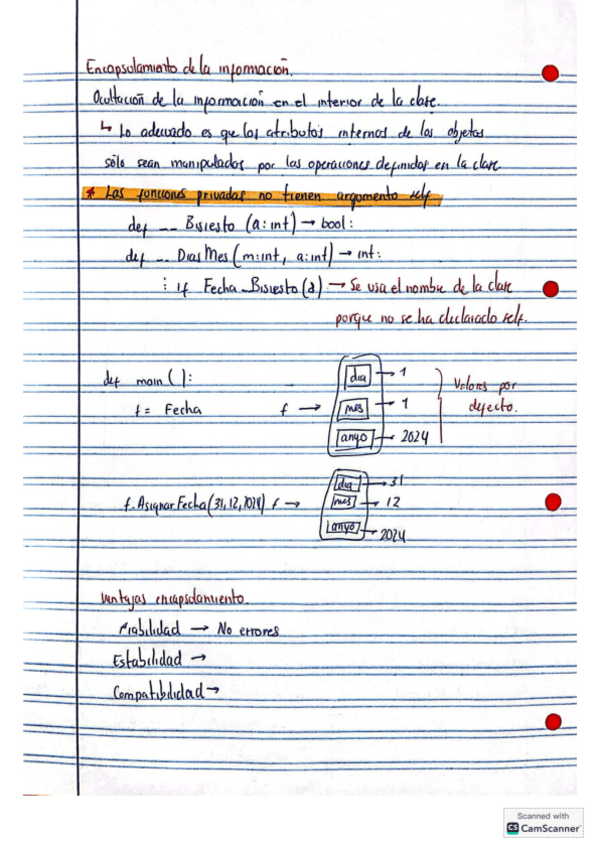 Encapsulamiento de la información.
Ocultación de la información en el interior de la clase.
↳ Lo adecuado es que los atributos internos de los objetos
sólo sean manipulados por las operaciones definidas en la clase
* Las funciones privadas no tienen argumento self
def __ Bisiesto (a: int) → bool:
def __ DiasMes (m: int, a: int) → int:
⋮ if Fecha_Bisiesto(a) → Se usa el nombre de la clase
porque no se ha declarado self.
def main ( ):
f = Fecha f →
dia → 1
mes → 1
anyo → 2024
Valores por
defecto.
f. AsignarFecha (31, 12, 2024) f →
dia → 31
mes → 12
anyo → 2024
Ventajas encapsulamiento.
Fiabilidad → No errores
Estabilidad →
Compatibilidad →
Scanned with
CS CamScanner